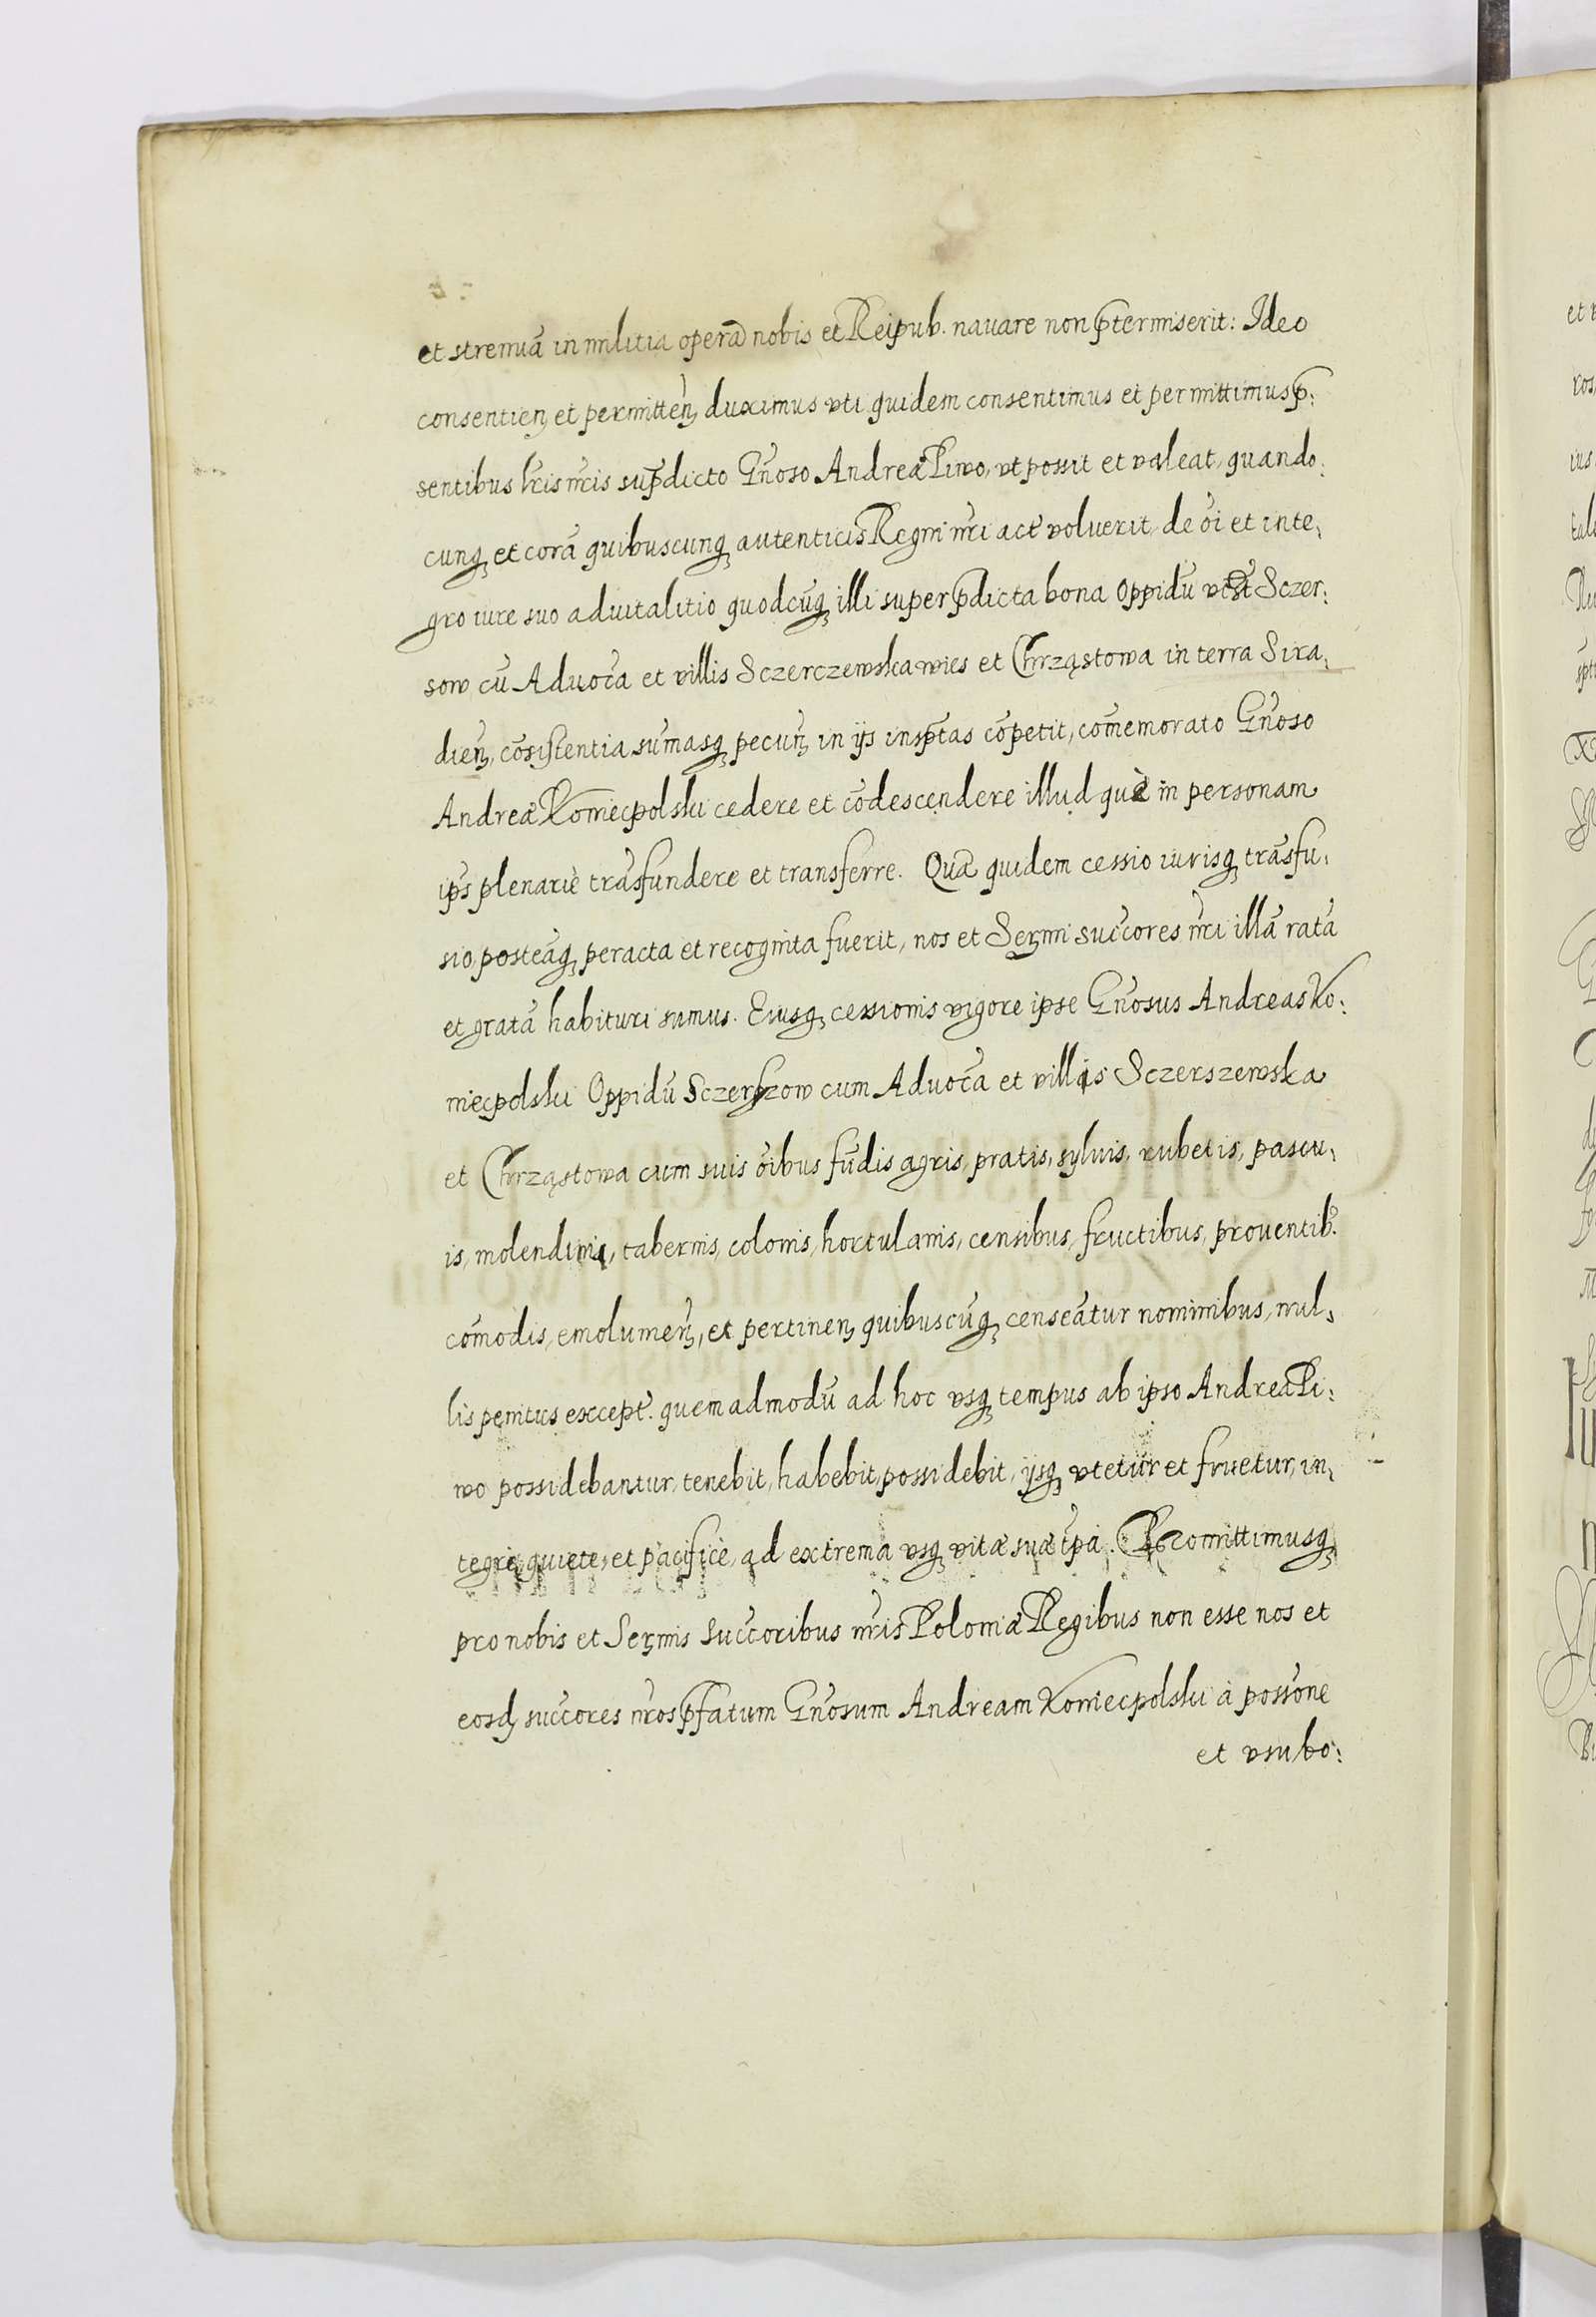 et strenuā in militia operā nobis et Reipub. nauare non p̄termiserit: Ideo
consentien̄ et permitten̄ duximus vti quidem consentimus et permittimus p̄:
sentibus lr̄is nr̄is sup̄dicto Gn̄oso Andreæ Piwo, vt possit et valeat, quando:
cunq; et corā quibuscunq; autenticis Regni nr̄i act̄ voluerit, de oī et inte,
gro iure suo aduitalitio quodcūq; illi super p̄dicta bona Oppidū Sczer:
sow cū Aduoc̄ia et villis Sczerczewska wies et Chrząstowa in terra Sira,
dien̄, cōsistentia sum̄asq; pecun̄ in ijs insp̄tas cōpetit, com̄emorato Gn̄oso
Andreæ Koniecpolski cedere et cōdescendere illud quæ in personam
ips̄ plenariè trāsfundere et transferre. Quæ quidem cessio iurisq; trāsfu,
sio, posteāq; peracta et recognita fuerit, nos et Serm̄i succ̄ores nr̄i illā ratā
et gratā habituri sumus. Eiusq; cessionis vigore ipse Gn̄osus Andreas Ko:
niecpolski Oppidū Sczerszow cum Aduoc̄ia et villis Sczerszewska
et Chrząstowa cum suis oībus fūdis agris, pratis, syluis, rubetis, pascu,
is, molendinis, tabernis, colonis, hortulanis, censibus, fructibus, prouentib9.
com̄odis, emolumen̄, et pertinen̄ quibuscūq; censeātur nominibus, nul,
lis penitus except̄. quemadmodū ad hoc vsq; tempus ab ipso Andrea Pi:
wo possidebantur, tenebit, habebit, possidebit, ijsq; vtetur et fruetur, in,
tegrè, quiete, et pacificè, ad extrema vsq; vitæ suæ tp̄a. Promittimusq;
pro nobis et Serm̄is succ̄oribus nr̄is Poloniæ Regibus non esse nos et
eosd; succ̄ores nr̄os p̄fatum Gn̄osum Andream Koniecpolski à poss̄one
et vsu bo: